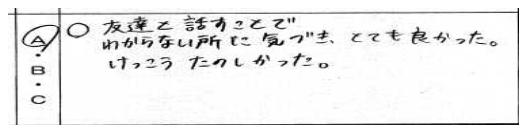 A・B・C
○ 友達と話すことで
わからない所に気づき、とても良かった。
けっこうたのしかった。